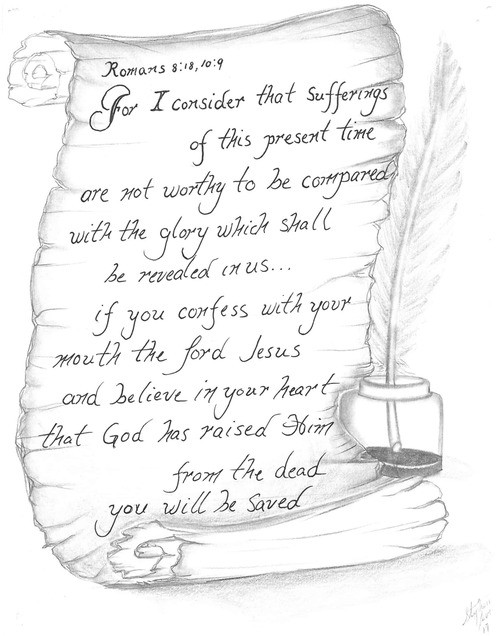 Romans 8:18, 10:9
For I consider that sufferings
of this present time
are not worthy to be compared
with the glory which shall
be revealed in us...
if you confess with your
mouth the Lord Jesus
and believe in your heart
that God has raised Him
from the dead
you will be saved